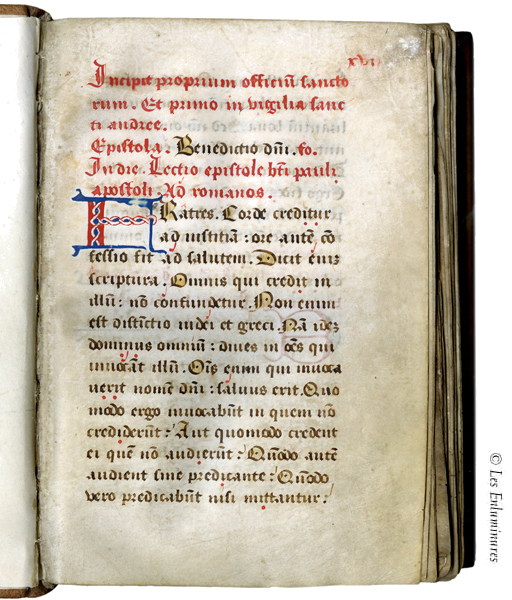 xvi
Incipit proprium officiū sancto
rum. Et primo in vigilia sanc
ti andree.
Epistola. Benedictio dnī. fo.
In die. Lectio epistole bti pauli
apostoli. Ad romanos.
FRatres. Corde creditur
ad iustitiā: ore autē cō
fessio fit ad salutem. Dicit eniz
scriptura. Omnis qui credit in
illū: nō confundetur. Non enim
est distinctio iudei et greci. Nā idez
dominus omniū: dives in oēs qui
invocāt illū. Oīs enim qui invoca
verit nomē dnī: salvus erit. Quo
modo ergo invocabūt in quem nō
crediderūt: Aut quomodo credent
ei quē nō audierūt: Quōdo autē
audient sine predicante: Quōdo
vero predicabūt nisi mittantur:
© Les Enluminures